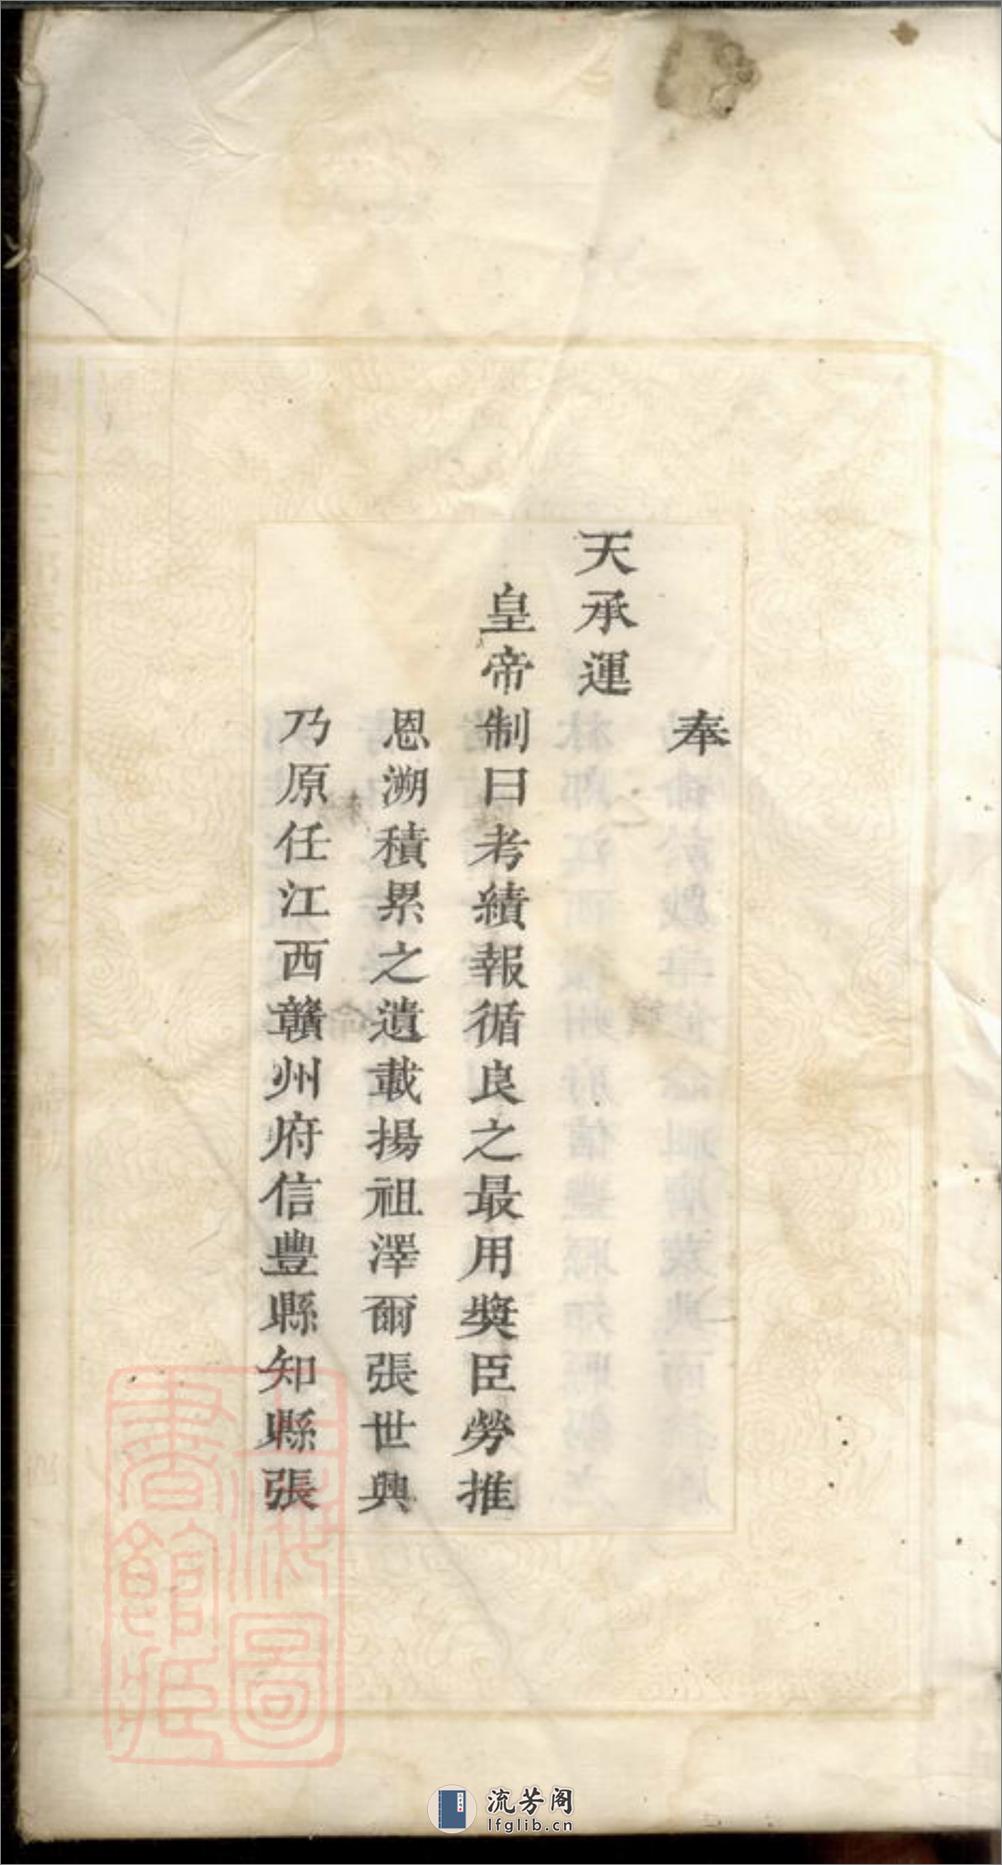 奉
天承運
皇帝制曰考績報循良之最用奬臣勞推
恩溯積累之遺載揚祖澤爾張世興
乃原任江西贛州府信豐縣知縣張
上海圖
書館藏
流芳阁
lfglib.cn